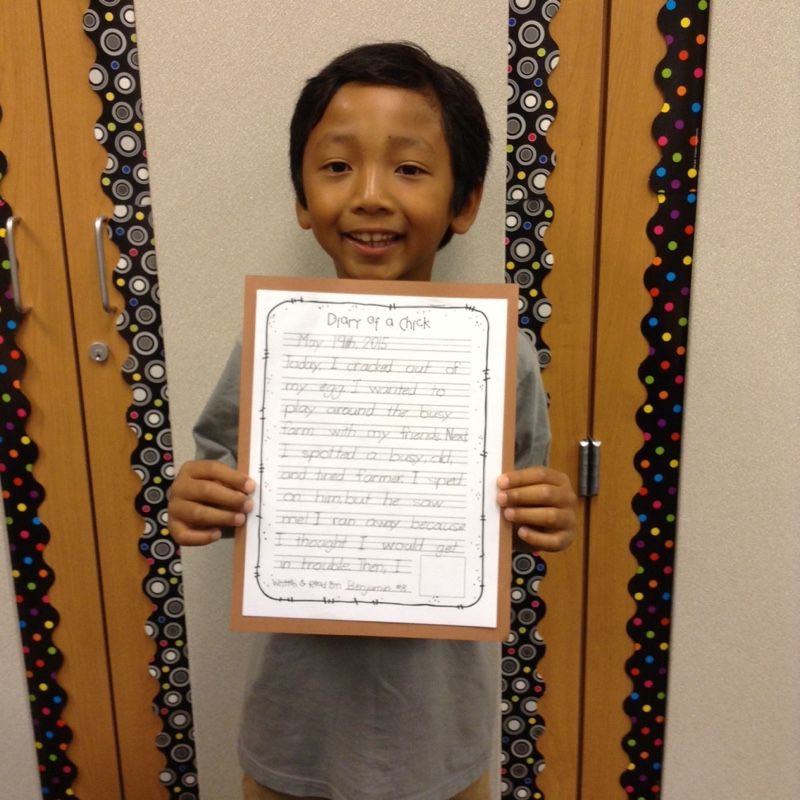 Diary of a Chick
May 19th, 2015
Today, I cracked out of
my egg. I wanted to
play around the busy
farm with my friends. Next,
I spotted a busy, old,
and tired farmer. I spied
on him, but he saw
me! I ran away because
I thought I would get
in trouble. Then, I
Written & Read By: Benjamin #8